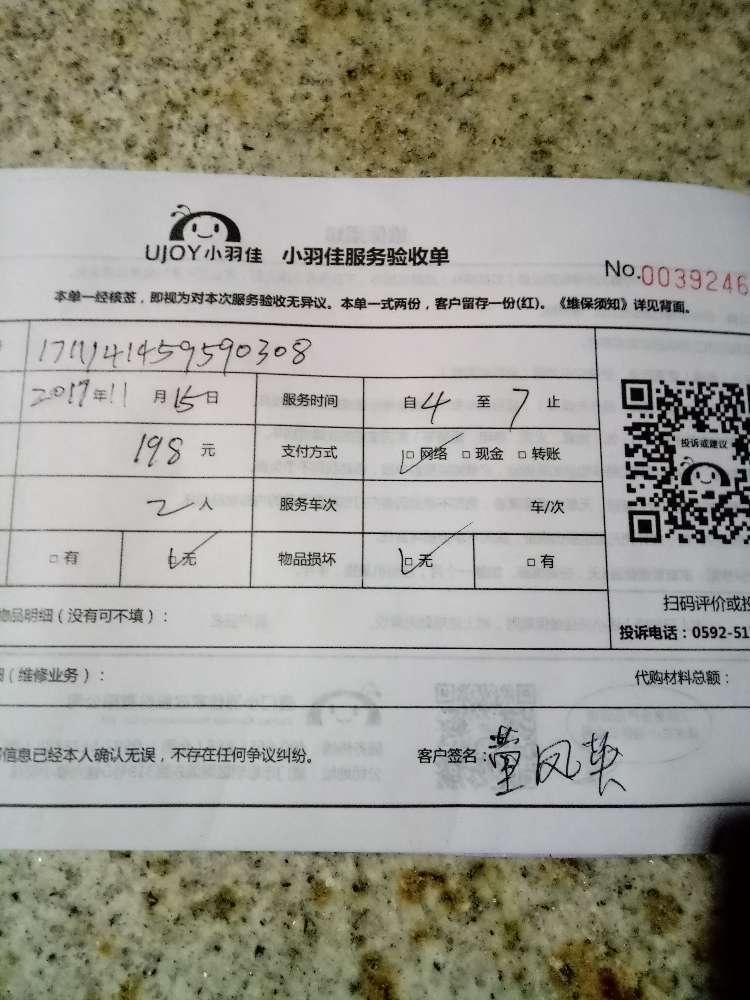 UJOY小羽佳 小羽佳服务验收单
No.0039246
本单一经核签，即视为对本次服务验收无异议。本单一式两份，客户留存一份(红)。《维保须知》详见背面。
1711141459590308
2017年11月15日 服务时间 自4至7止
198元 支付方式 □网络 □现金 □转账
投诉或建议
2人 服务车次 车/次
□有 □无 物品损坏 □无 □有
扫码评价或投
物品明细（没有可不填）：
投诉电话：0592-51
（维修业务）： 代购材料总额：
信息已经本人确认无误，不存在任何争议纠纷。 客户签名：董凤英